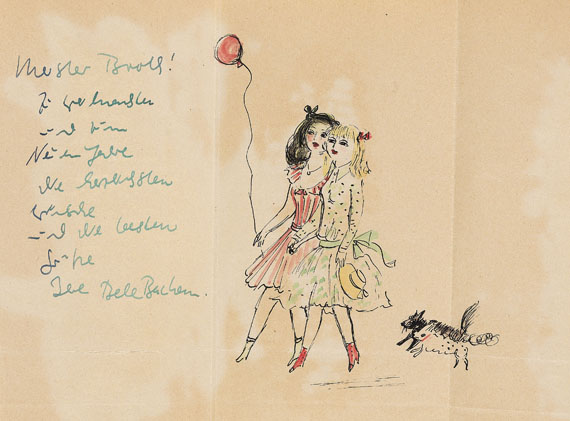 Meister Broth!
Zu Weihnachten
und zum
Neuen Jahre
die herzlichsten
Wünsche
und die besten
Grüße
Ihre Dele Bachem.